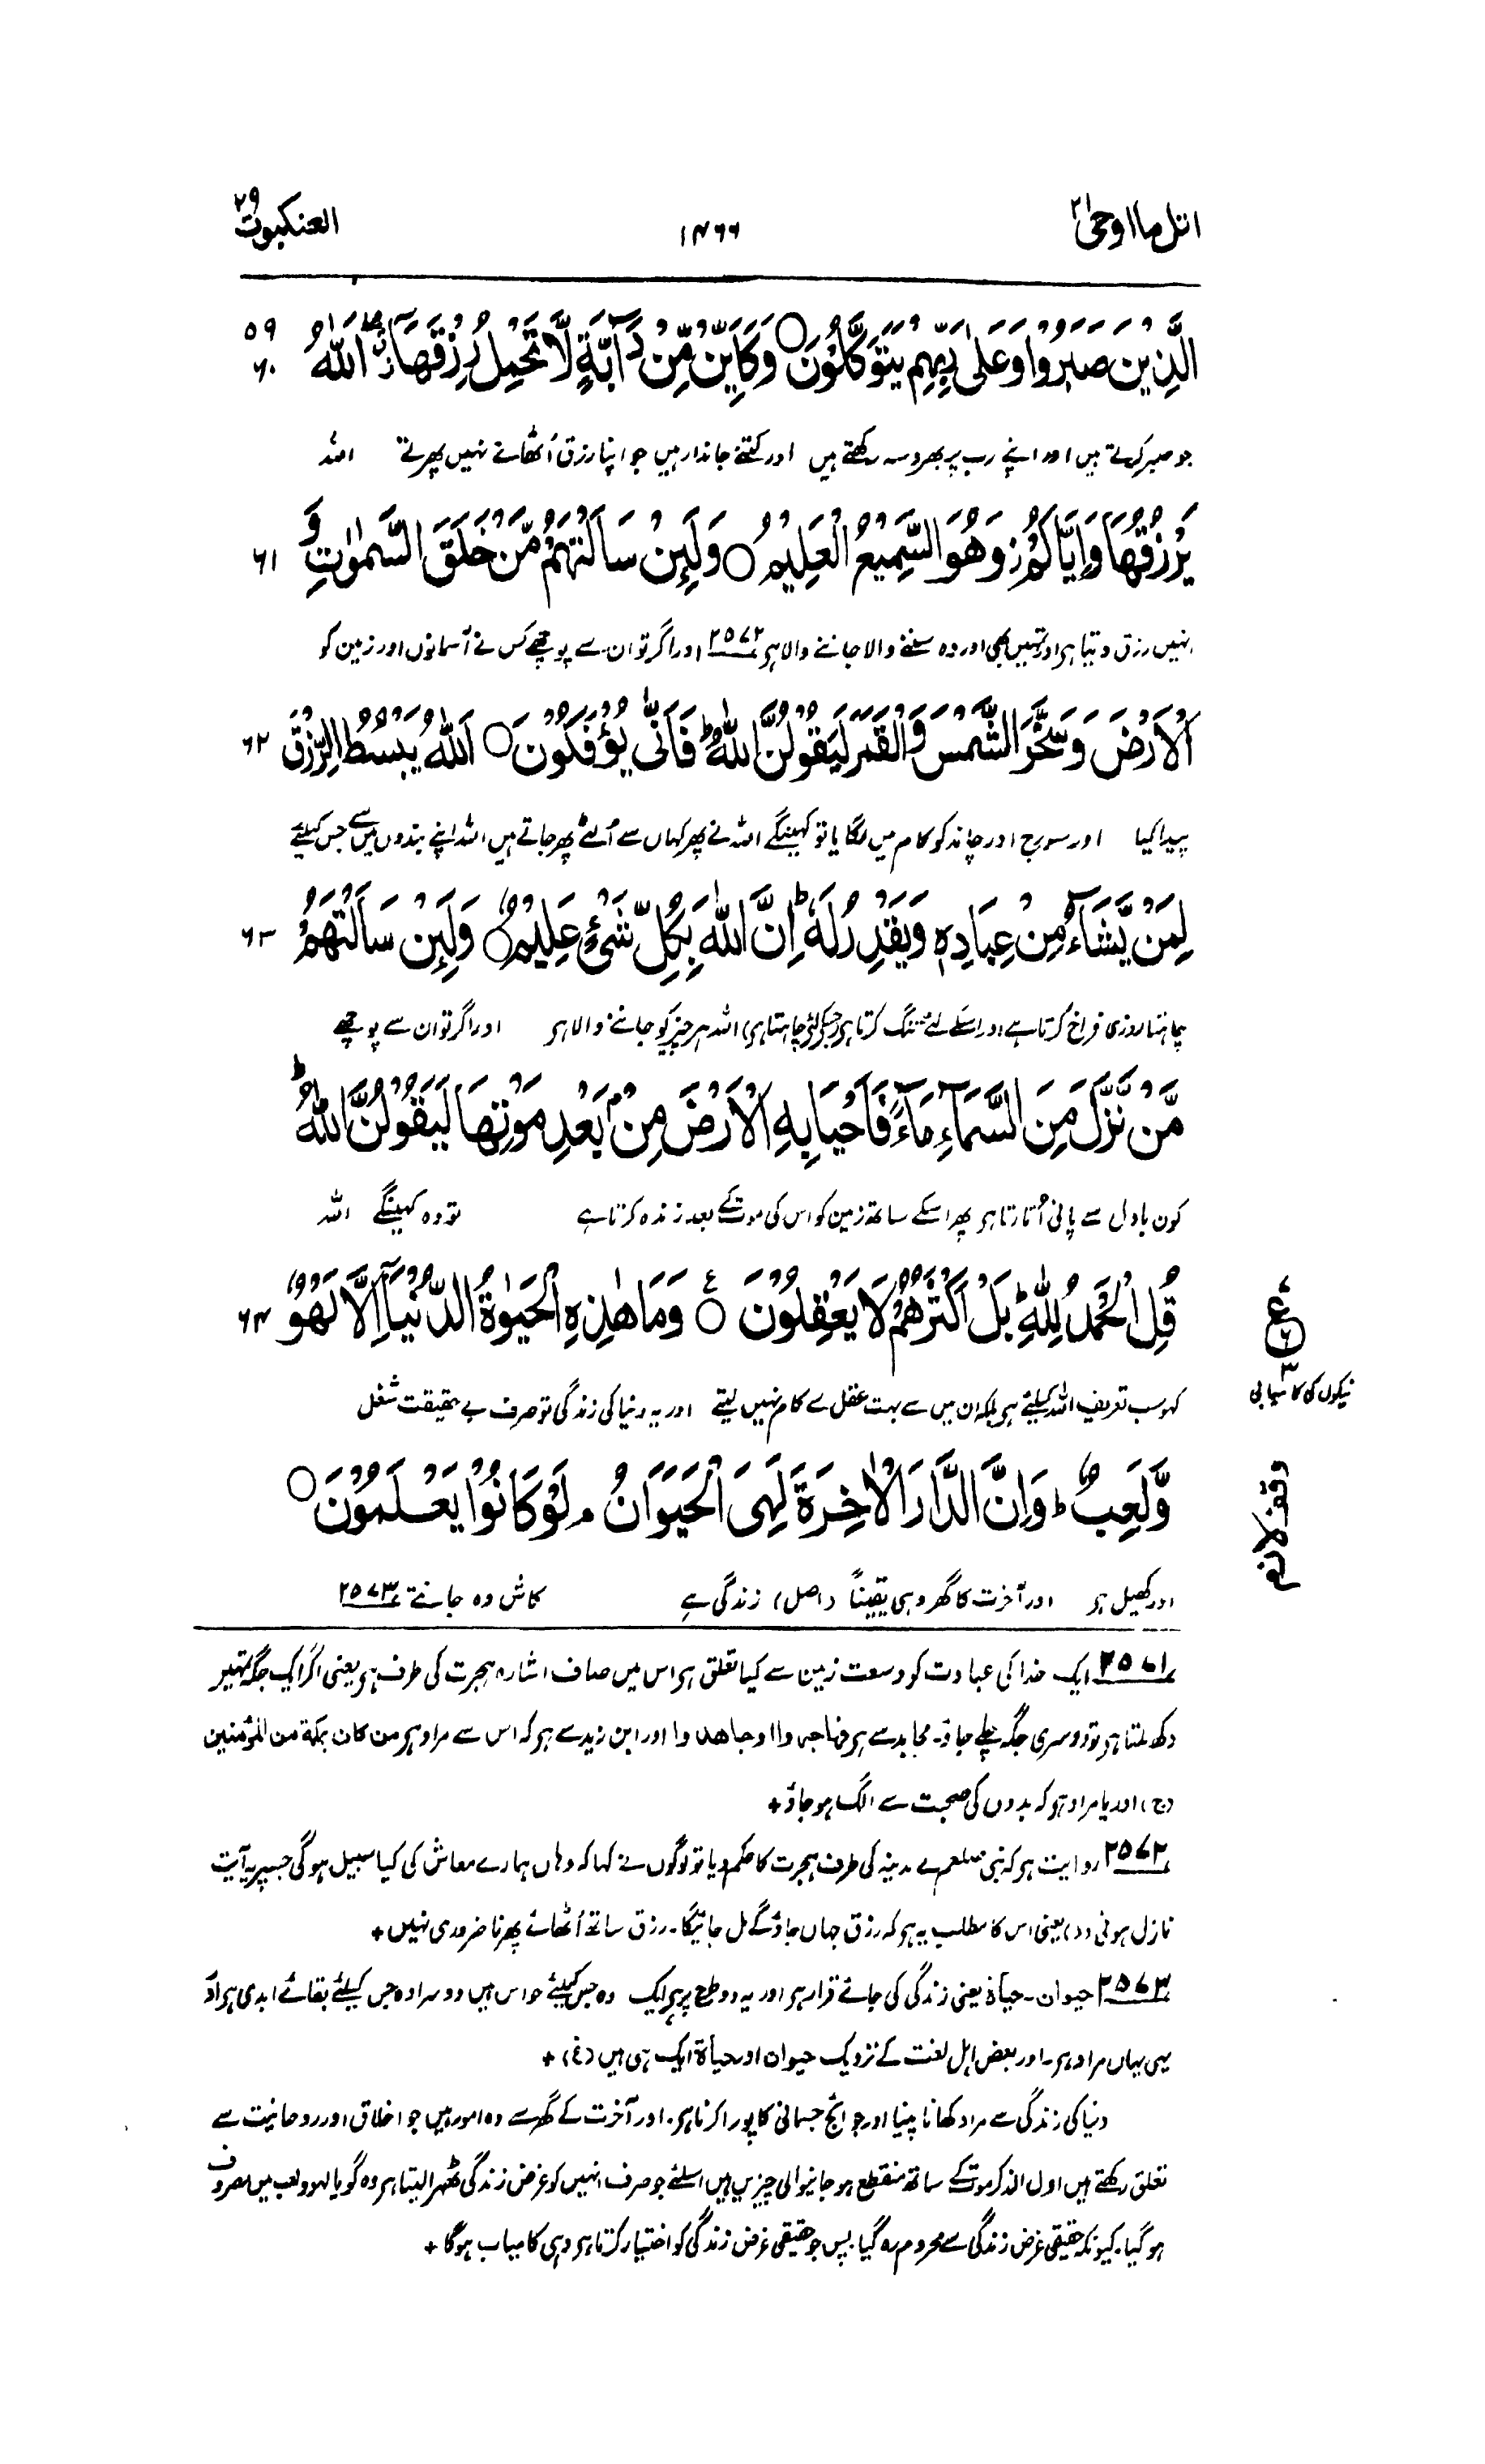 اتل ما اوحی ۲۱
۱۴۶۶
العنکبوت ۲۹
الَّذِيْنَ صَبَرُوْا وَعَلٰى رَبِّهِمْ يَتَوَكَّلُوْنَ ○ وَكَاَيِّنْ مِّنْ دَآبَّةٍ لَّا تَحْمِلُ رِزْقَهَا اَللّٰهُ ۵۹ ۶۰
جو صبر کرتے ہیں اور اپنے رب پر بھروسہ رکھتے ہیں اور کتنے جاندار ہیں جو اپنا رزق اُٹھائے نہیں پھرتے اللہ
يَرْزُقُهَا وَاِيَّاكُمْ ۖ وَهُوَ السَّمِيْعُ الْعَلِيْمُ ○ وَلَىِٕنْ سَاَلْتَهُمْ مَّنْ خَلَقَ السَّمٰوٰتِ وَ ۶۱
انہیں رزق دیتا ہر اور تمہیں بھی اور وہ سننے والا جاننے والا ہر ۲۵۷۲ اور اگر تو ان سے پوچھے کس نے آسمانوں اور زمین کو
الْاَرْضَ وَسَخَّرَ الشَّمْسَ وَالْقَمَرَ لَيَقُوْلُنَّ اللّٰهُ ؕ فَاَنّٰى يُؤْفَكُوْنَ ○ اَللّٰهُ يَبْسُطُ الرِّزْقَ ۶۲
پیدا کیا اور سورج اور چاند کو کام میں لگایا تو کہینگے اللہ نے پھر کہاں سے اُلٹے پھر جاتے ہیں اللہ اپنے بندوں میں سے جس کیلئے
لِمَنْ يَّشَآءُ مِنْ عِبَادِهٖ وَيَقْدِرُ لَهٗ ؕ اِنَّ اللّٰهَ بِكُلِّ شَىْءٍ عَلِيْمٌ ○ وَلَىِٕنْ سَاَلْتَهُمْ ۶۳
چاہتا روزی فراخ کرتا ہے اور اسکے لئے تنگ کرتا ہر (جسکے لئے چاہتا ہر) اللہ ہر چیز کو جاننے والا ہر اور اگر تو ان سے پوچھے
مَّنْ نَّزَّلَ مِنَ السَّمَآءِ مَآءً فَاَحْيَا بِهِ الْاَرْضَ مِنْۢ بَعْدِ مَوْتِهَا لَيَقُوْلُنَّ اللّٰهُ ؕ
کون بادل سے پانی اُتارتا ہر پھر اسکے ساتھ زمین کو اس کی موت کے بعد زندہ کرتا ہے تو وہ کہینگے اللہ
قُلِ الْحَمْدُ لِلّٰهِ ؕ بَلْ اَكْثَرُهُمْ لَا يَعْقِلُوْنَ ○ ع وَمَا هٰذِهِ الْحَيٰوةُ الدُّنْيَآ اِلَّا لَهْوٌ ۶۴
ع ۶
نیکوں کی کامیابی
کہو سب تعریف اللہ کیلئے ہر بلکہ ان میں سے بہت عقل سے کام نہیں لیتے اور یہ دنیا کی زندگی تو صرف بے حقیقت شغل
وَّلَعِبٌ ؕ وَاِنَّ الدَّارَ الْاٰخِرَةَ لَهِىَ الْحَيَوَانُ ۘ لَوْ كَانُوْا يَعْلَمُوْنَ ○
وقف لازم
اور کھیل ہر اور آخرت کا گھر وہی یقیناً (اصل) زندگی ہے کاش وہ جانتے ۲۵۷۳
۲۵۷۱ ایک خدا کی عبادت کو وسعت زمین سے کیا تعلق ہر اس میں صاف اشارہ ہجرت کی طرف ہر یعنی اگر ایک جگہ تمہیں
دکھ ملتا ہر تو دوسری جگہ چلے جاؤ۔ مجاہد سے ہر فهاجروا وجاهدوا اور ابن زید سے ہر کہ اس سے مراد ہر من كان بمكة من المؤمنين
(ج) اور یا مراد ہر کہ بدوں کی صحبت سے الگ ہو جاؤ +
۲۵۷۲ روایت ہر کہ نبی صلعم نے مدینہ کی طرف ہجرت کا حکم دیا تو لوگوں نے کہا کہ وہاں ہمارے معاش کی کیا سبیل ہوگی جسپر یہ آیت
نازل ہوئی (د) یعنی اس کا مطلب یہ ہر کہ رزق جہاں جاؤگے مل جائیگا۔ رزق ساتھ اُٹھائے پھرنا ضروری نہیں +
۲۵۷۳ حیوان۔ حیاۃ یعنی زندگی کی جائے قرار ہر اور یہ دو طرح پر ہر ایک وہ جس کیلئے حواس ہیں دوسرا وہ جس کیلئے بقائے ابدی ہر اور
یہی یہاں مراد ہر۔ اور بعض اہل لغت کے نزدیک حیوان اور حیاۃ ایک ہی ہیں (غ) +
دنیا کی زندگی سے مراد کھانا پینا اور حوائج جسمانی کا پورا کرنا ہر۔ اور آخرت کے گھر سے وہ امور ہیں جو اخلاق اور روحانیت سے
تعلق رکھتے ہیں اول الذکر موت کے ساتھ منقطع ہو جانیوالی چیزیں ہیں اسلئے جو صرف انہیں کو غرض زندگی ٹھہرا لیتا ہر وہ گویا لہو و لعب میں مصروف
ہو گیا۔ کیونکہ حقیقی غرض زندگی سے محروم رہ گیا۔ پس جو حقیقی غرض زندگی کو اختیار کرتا ہر وہی کامیاب ہوگا +